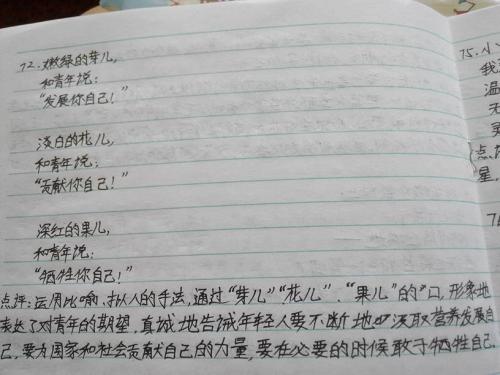 72.嫩绿的芽儿,
和青年说:
“发展你自己!”
淡白的花儿,
和青年说:
“贡献你自己!”
深红的果儿,
和青年说:
“牺牲你自己!”
点评:运用比喻、拟人的手法,通过“芽儿”“花儿”、“果儿”的口,形象地
表达了对青年的期望,真诚地告诫年轻人要不断地汲取营养发展自
己,要为国家和社会贡献自己的力量,要在必要的时候敢于牺牲自己
75.小
我
温
无
点
星,